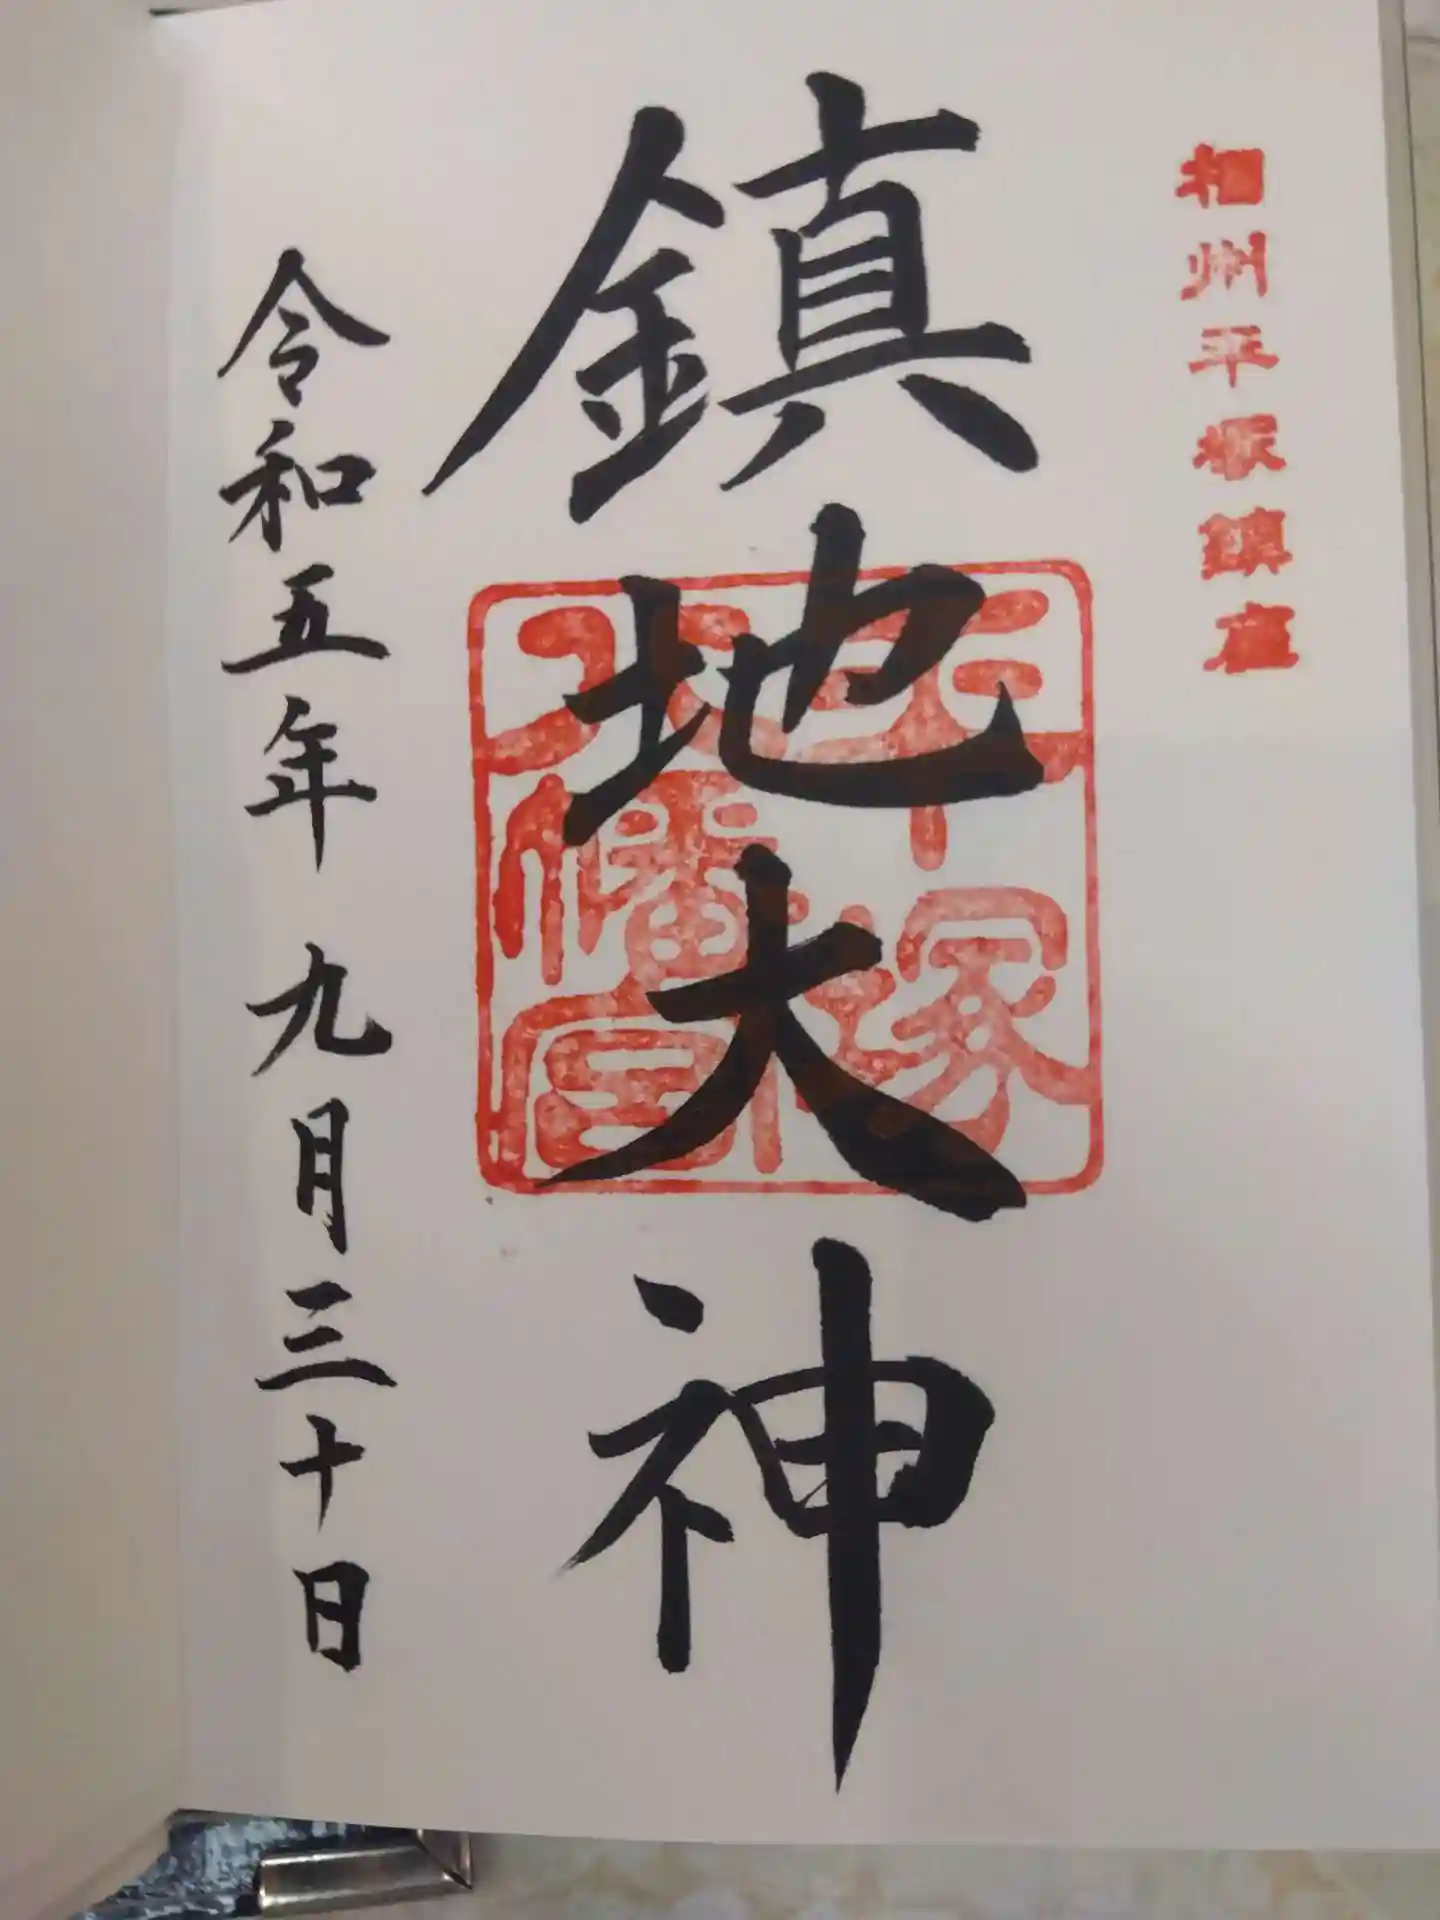 相州平塚鎮座
鎮地大神
平塚
八幡宮
令和五年 九月三十日